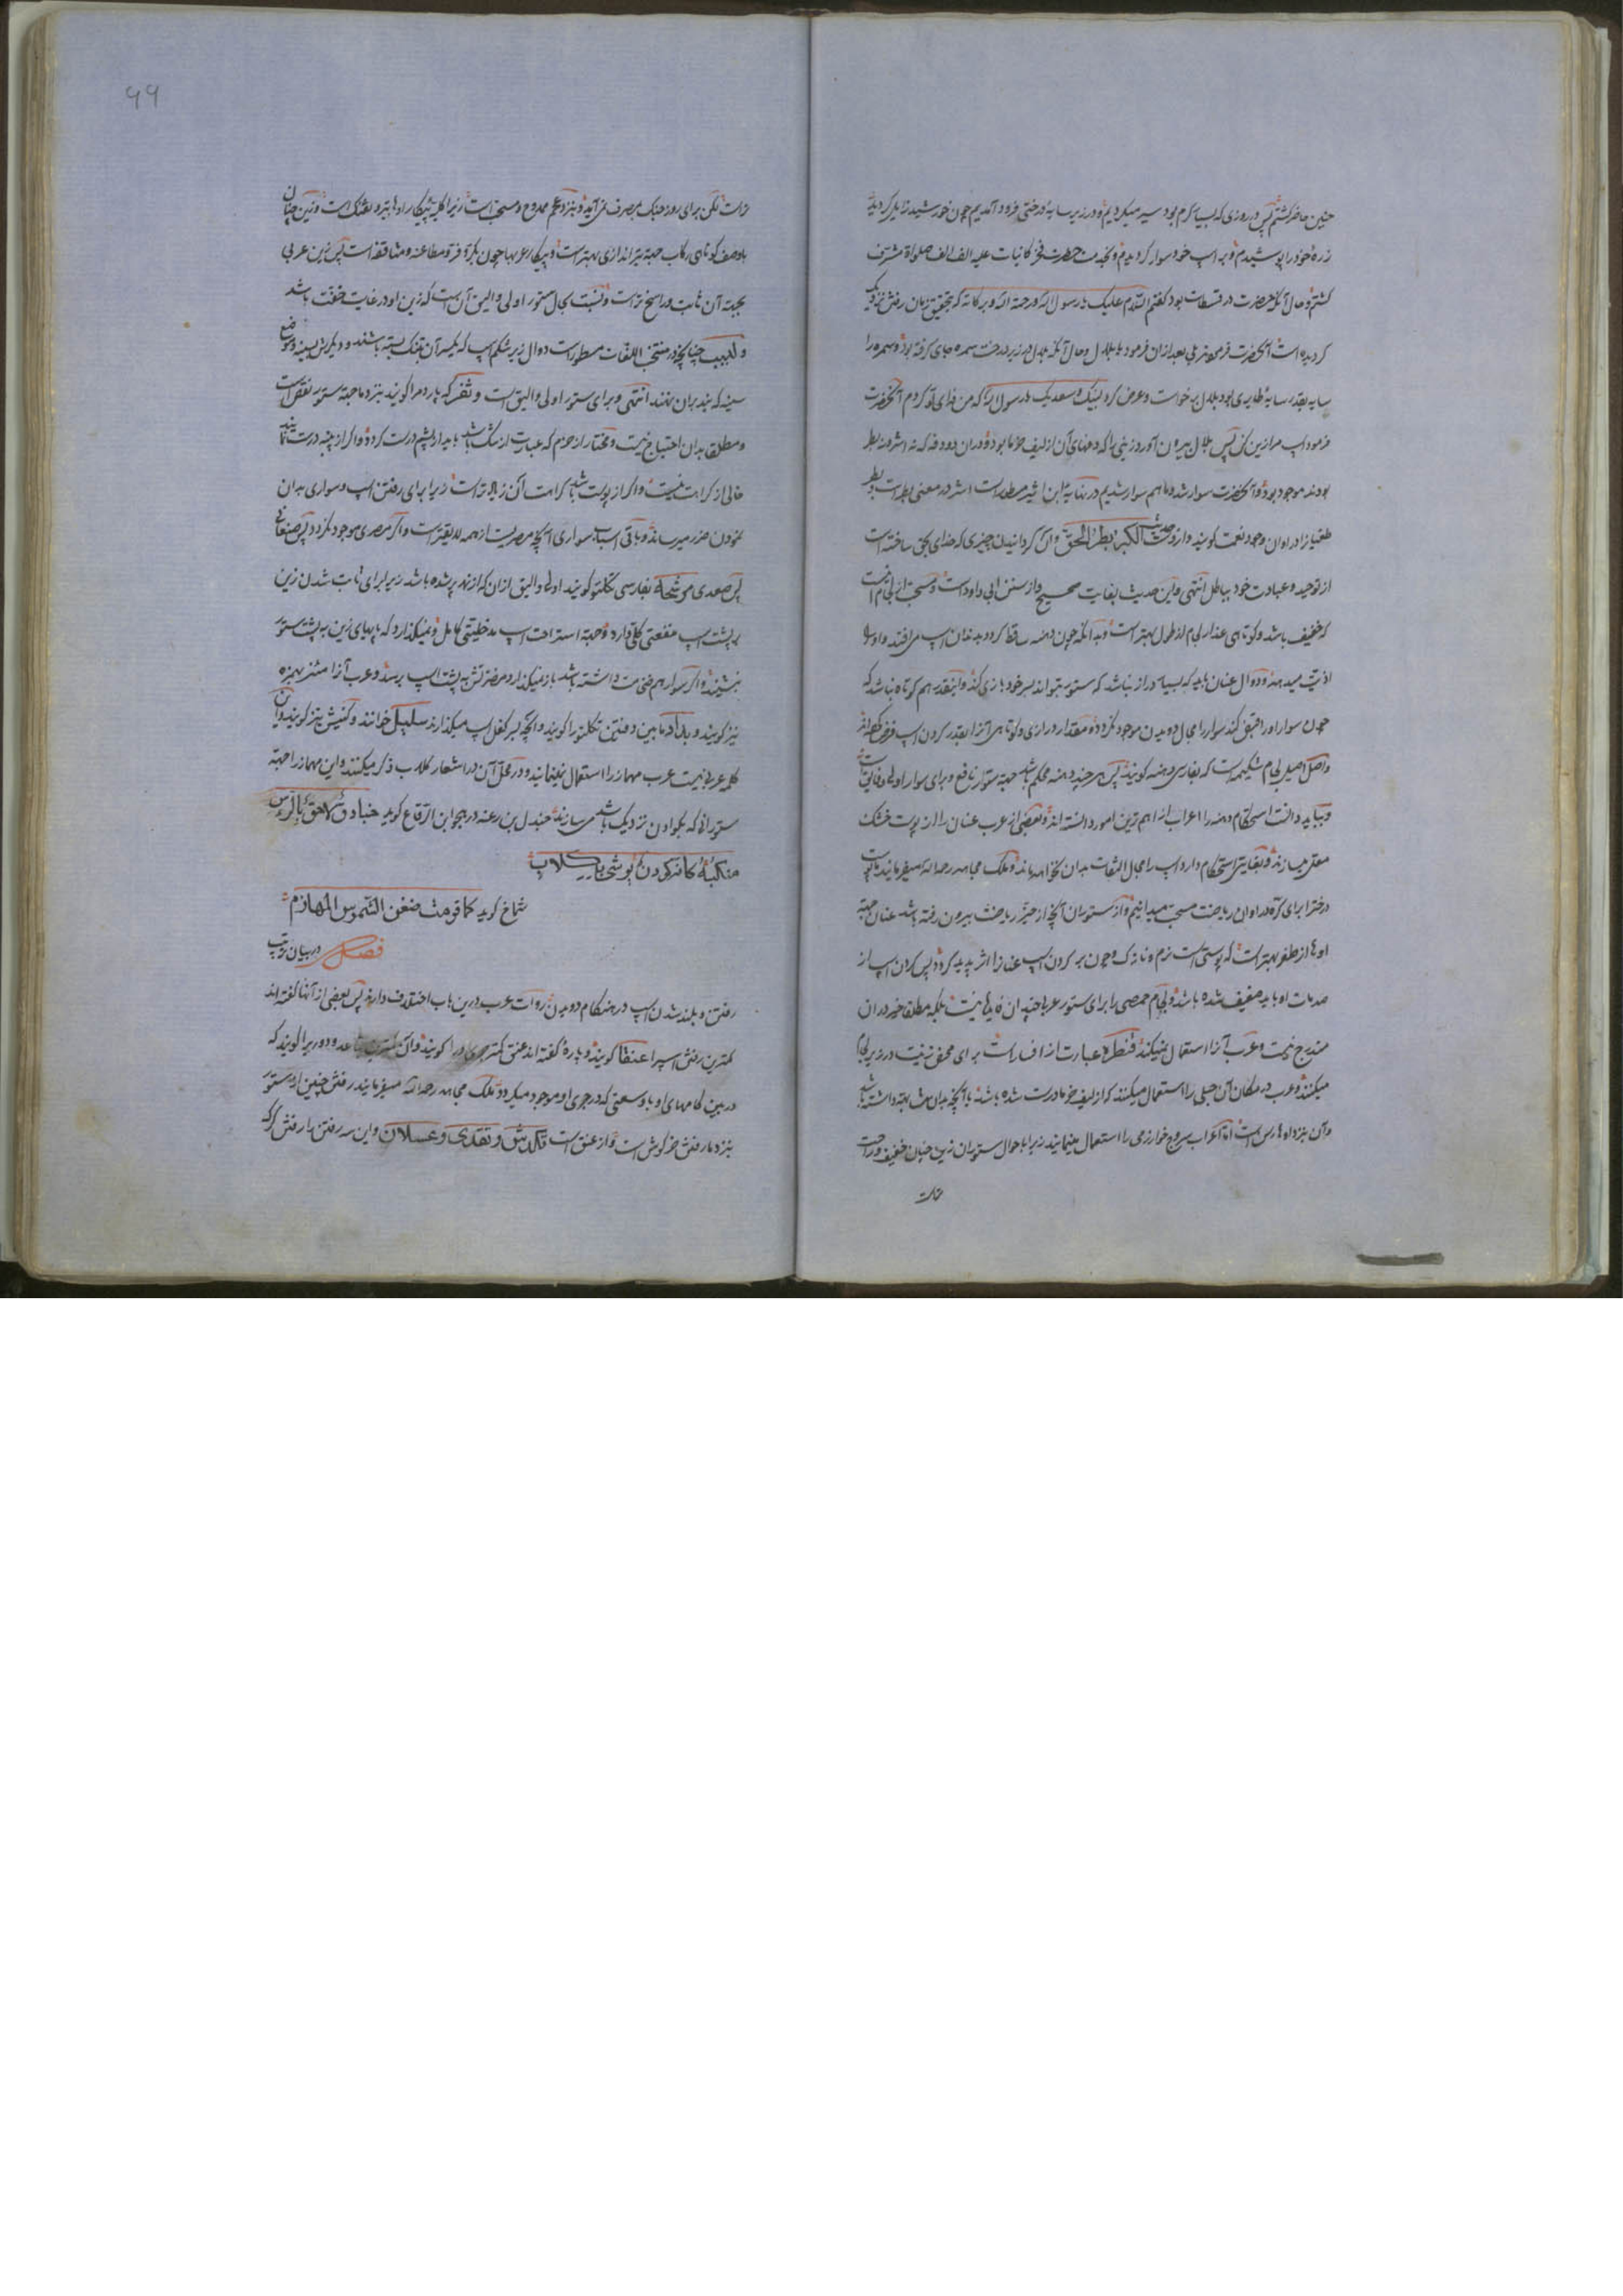 حنین حاضر گشتم پس در روزی که بسیار گرم بود سیر میکردیم و در زیر سایه درختی فرود آمدیم چون خورشید زایل گردید
زره خود را پوشیدم و بر اسپ خود سوار گردیدم و بخدمت حضرت فخر کائنات علیه الف الف صلواة مشرف
گشتم و حال آنکه حضرت در فسطاط بود گفتم السلام علیک یا رسول الله و رحمة الله و برکاته که بتحقیق زمان رفتن نزدیک
گردیده است آنحضرت فرمودند بلی بعد ازان فرمود یا بلال و حال آنکه بلال در زیر درخت سمره جای گرفته بود و سمره را
سایه بقدر سایهٔ طایری بود بلال برخواست و عرض کرد لبیک و سعدیک یا رسول الله که من فدای تو گردم آنحضرت
فرمود اسپ مرا زین کن پس بلال بیرون آورد زینی را که دفهای آن از لیف خرما بود و دران دو دفه که نه اشر و نه بطر
بودند موجود بود و آنحضرت سوار شد و ما هم سوار شدیم در نهایه ابن اثیر مسطور است اشر در معنی بطر است و بطر
طغیانرا در اوان وجود نعمت گویند و از وست حدیث الکبر بطر الحق و آن گردانیدن چیزی که خدای بحق ساخته است
از توحید و عبادت خود بباطل انتهی و این حدیث بغایت صحیح و از سنن ابی داود است و مستحب از لجام آنست
که خفیف باشد و کوتاهی عذار لجام از طول بهتر است و بدانکه چون دهنه ساقط گردد بدندان اسپ می افتد و او را
اذیت میدهد و دوال عنان باید که بسیار دراز نباشد که ستور بتواند بسر خود بازی کند و اینقدر هم کوتاه نباشد که
چون سوار او را قبض کند سوار را مجال دویدن موجود نگردد و مقدار درازی و کوتاهی آنرا بقدر گردن اسپ فرض کرده اند
و اصل اصیل لجام شکیمه است که بفارسی دهنه گویند پس هر چند دهنه محکم باشد جهة ستور نافع و برای سوار اولی و فایق است
و بباید دانست استحکام دهنه را اعراب از اهم ترین امور دانسته اند و بعضی از عرب عنان را از پوست خشک
معقلی میسازند و بغایتی استحکام دارد اسپ را مجال التفات بدان نخواهد ماند و ملک مجاهد رحمه الله میفرمایند ما پوست
درختر ا برای کره در اوان ریاضت مستحب میدانیم و از ستوران آنچه از حیّز ریاضت بیرون رفته باشد عنان جهة
اوها از طفو بهتر است که پوستی است نرم و نازک و چون بر گردن اسپ عنانرا اثر پدید گردد پس گردن اسپ از
صدمات او باید ضعیف شده باشد و لجام حمصی را برای ستور عربی چندان فایدها نیست بلکه مطلقا خیر در ان
مندرج نیست و عرب آنرا استعمال نمیکنند و قنطره عبارت از افسار است برای محض زینت در زیر لجام
میکنند و عرب در مکان آن حبلی را استعمال میکنند که از لیف خرما درست شده باشد یا آنچه بدان مشابهت داشته باشد
و آن بنزد اوها رسن است اما اعراب سروج خوارزمی را استعمال مینمایند زیرا باحوال ستوران زین چنان خفیف و راحت
تر است
۹۹
تر است لکن برای روز جنک بمصرف نمی آید و بنزد عجم ممدوح و مستحب است زیرا که پیکار اوها بتیر و تفنگ است و زین چنان
باوصف کوتاهی رکاب جهة تیراندازی بهتر است و پیکار عربها چون بکر و فر و مطاعنه و مثاقفه است پس زین عربی
بجهة آن ثابت و راسخ تر است و بنسبت بحال ستور اولی و الیق آن است که زین او در غایت خفت باشد
و لبیب چنانچه در منتخب اللغات مسطور است دوال زیر شکم اسپ که یکسر آن بتنک بسته باشند و دیگرش بسینه و موضع
سینه که بند بران بندند انتهی و برای ستور اولی و الیق است و ثفر که پاردم را گویند بنزد ما جهة ستور نقص است
و مطلقا بدان احتیاج نیست و مختار از حزم که عبارت از تنگ باشد باید از پشم درست کرد و اگر از پنبه درست نمایند
خالی از کراهت نیست و اگر از پوست باشد کراهت آن زیاده تر است زیرا برای رفتن اسپ و سواری بدان
نمودن ضرر میرساند و باقی اسباب سواری آنچه مصریست از همه لایقتر است و اگر مصری موجود نگردد پس صنعانی
پس صعدی مرشحه بفارسی تکلتو گویند اولی و الیق ازان که از نمد پر شده باشد زیرا برای ثابت شدن زین
بر پشت اسپ منفعتی کلی دارد و جهة استراحت اسپ مدخلیتی کامل و نمیگذارد که پایهای زین به پشت ستور
نشیند و اگر سوار هم ضخامت داشته باشد باز نمیگذارد مضرتش به پشت اسپ برسد و عرب آنرا مئثر بهمزه
نیز گویند و بداد مابین دفتین تکلتو را گویند و آنچه بر کفل اسپ میگذارند سلیل خوانند و کنیش نیز گویند و آن
کلمه عربی نیست عرب مهماز را استعمال نمینمایند و در محل آن در اشعار کلاب ذکر میکنند و این مهماز را جهة
ستورانی که بکوادن نزدیک باشد میسازند جندل بن رعنه در هجو ابن الرقاع گوید جنادف لاحق بالراس
منکبه کانه کودن یوشی بکلاب
شماخ گوید کما قومت ضغن الشموس المهازم
فصل در بیان مراتب
رفتن و بلند شدن اسپ در هنگام دویدن روات عرب درین باب اختلاف دارند پس بعضی از آنها گفته اند
کمترین رفتن اسپ را عنقا گویند و پاره گفته اند عنق کمتر جری او را گویند و آن ودو ریرا گویند که
در بین گامهای او با وسعتی که در جری او موجود میگردد ملک مجاهد رحمه الله میفرمایند رفتن چنین از ستور
بنزد ما رفتن خرگوش است و از عنق است تکدش و تقدی و عسلان و این سه رفتن را رفتن گرک